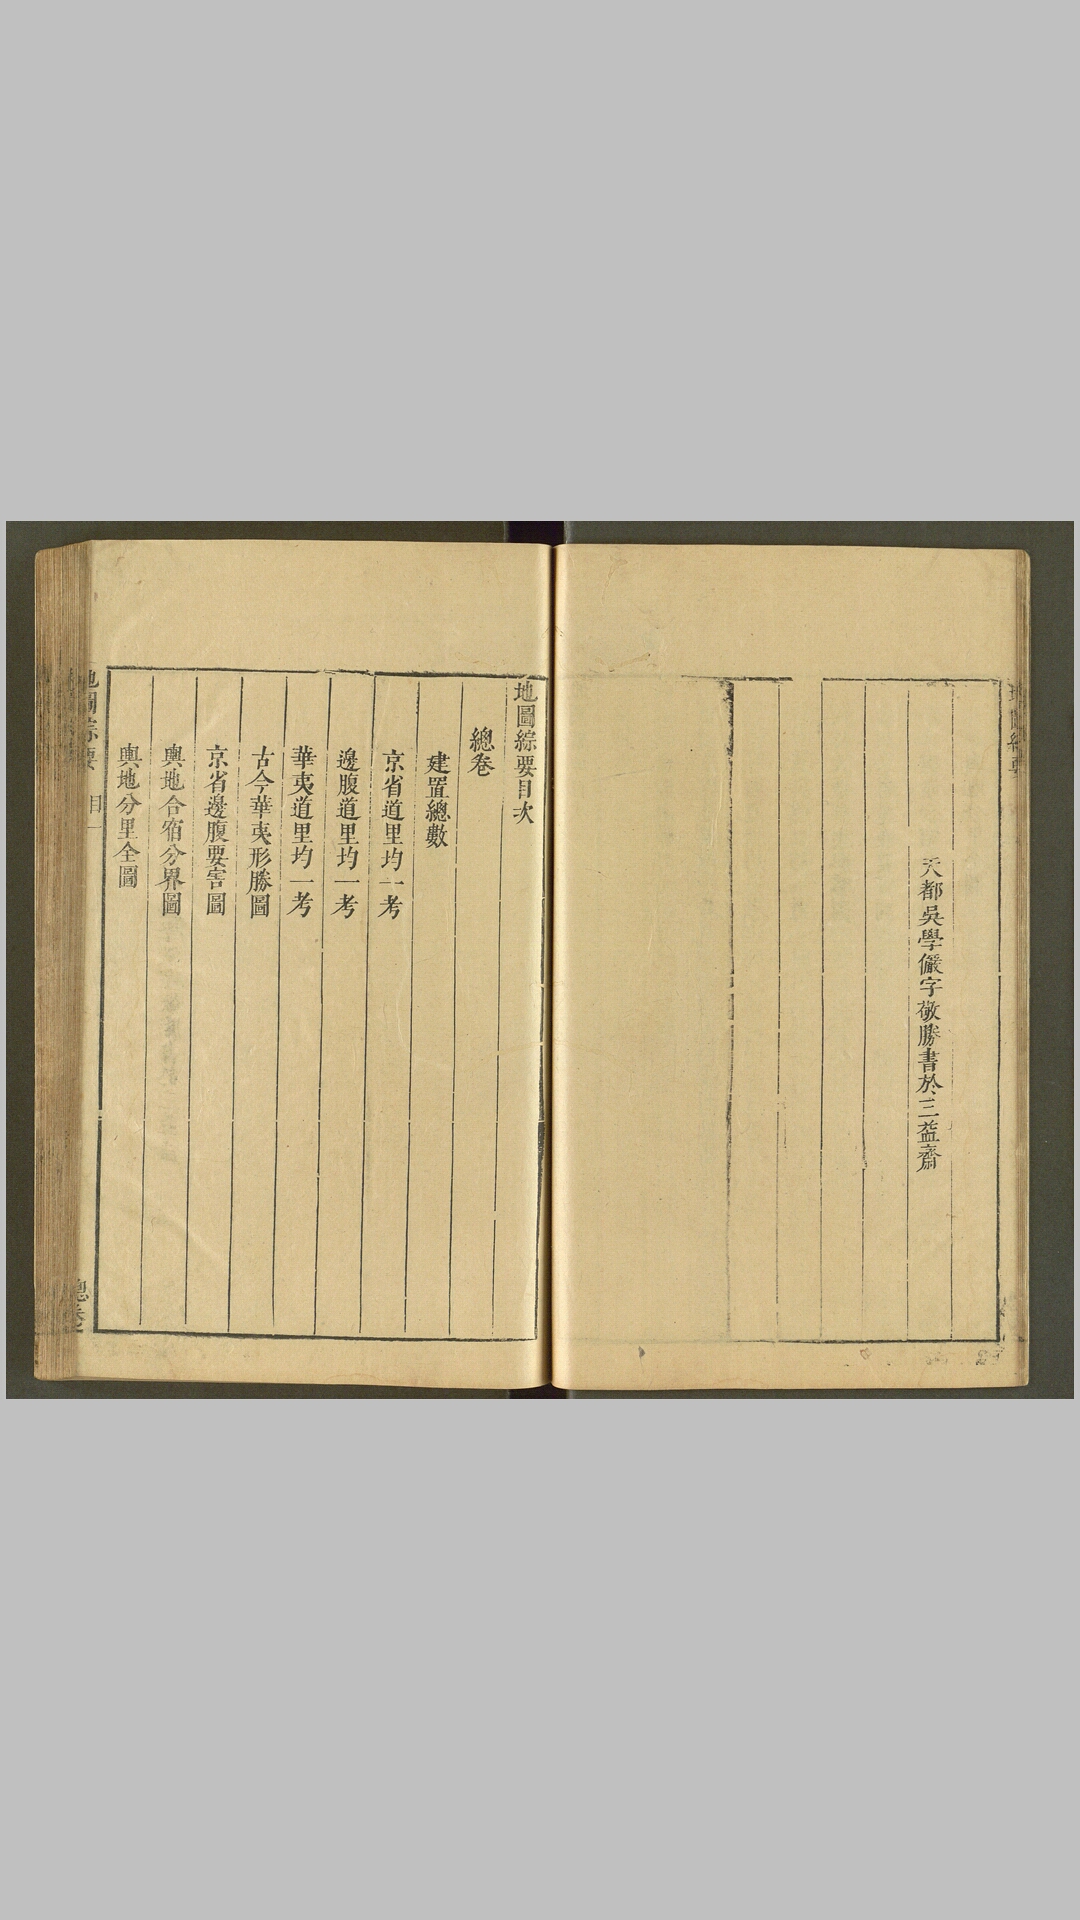 天都吳學儼字敬勝書於三益齋
地圖綜要目次
總卷
建置總數
京省道里均一考
邊腹道里均一考
華夷道里均一考
古今華夷形勝圖
京省邊腹要害圖
輿地合宿分界圖
輿地分里全圖
地圖綜要 目一 總卷